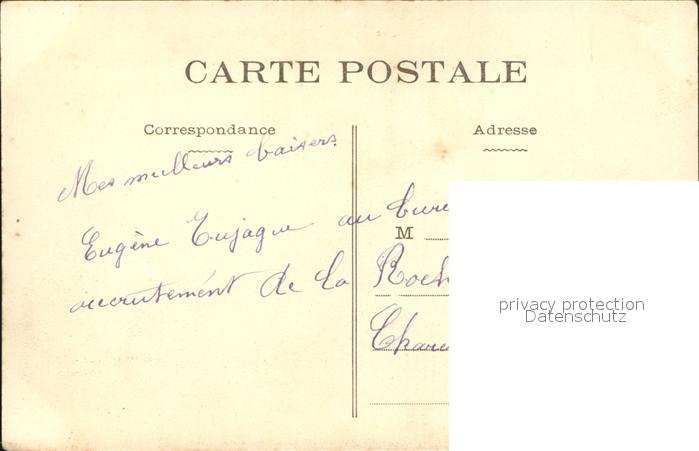 CARTE POSTALE
Correspondance
Adresse
Mes meilleurs baisers
Eugène Tujague au bure
M
recrutement de la Roch
Chare
privacy protection
Datenschutz